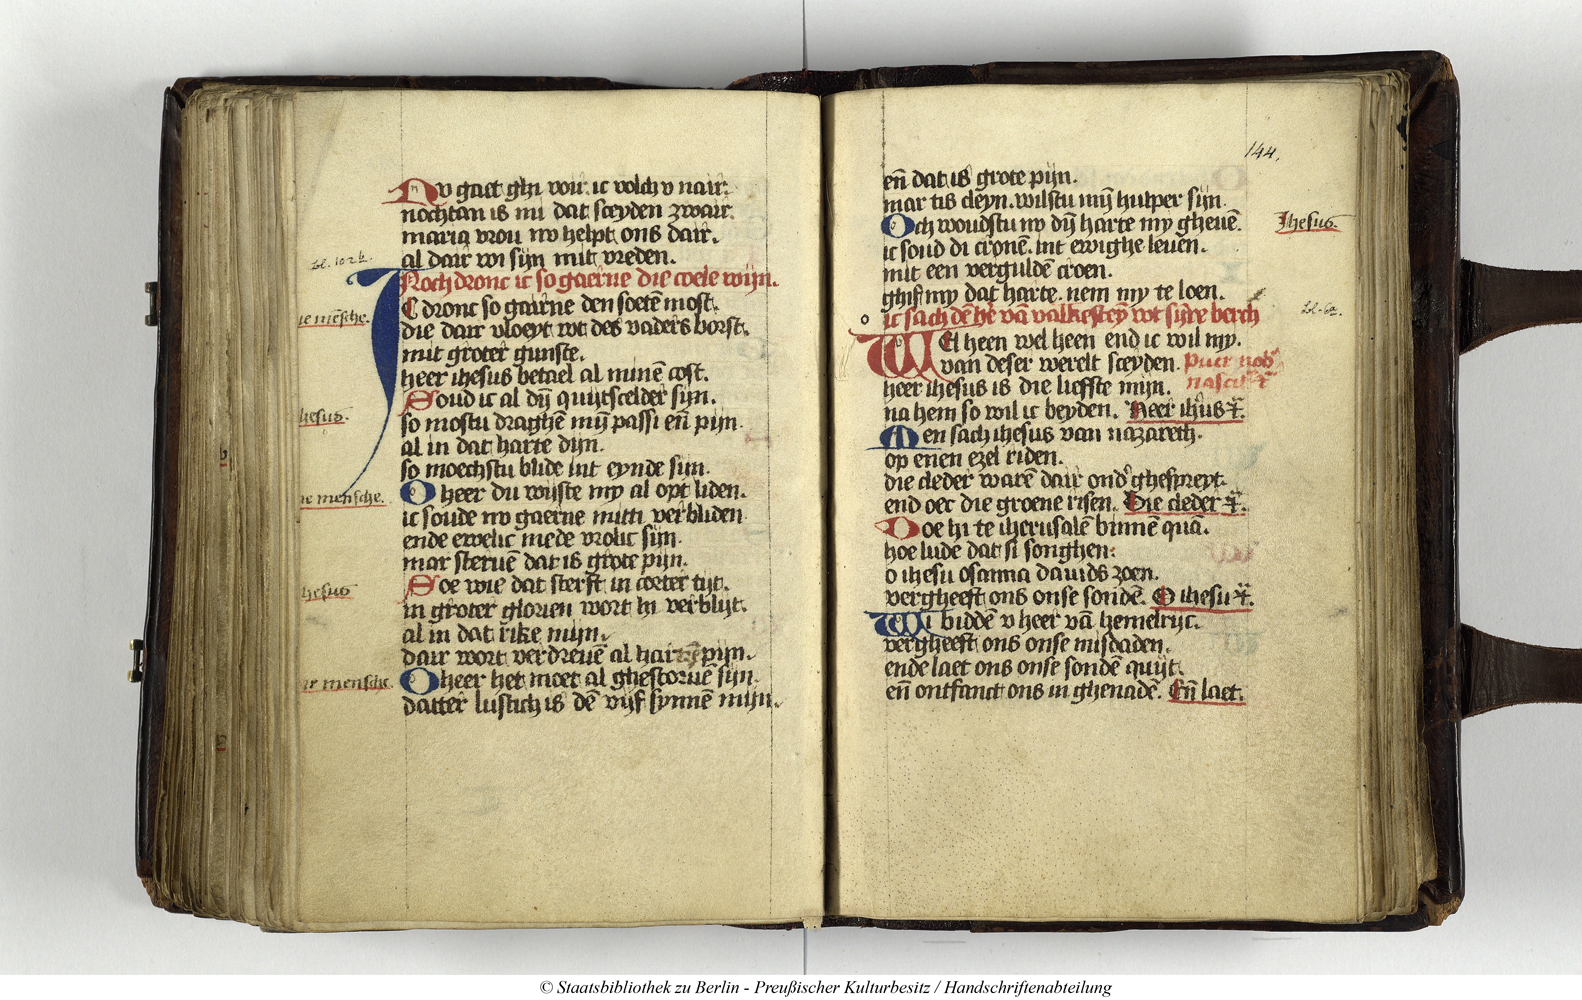 Nv gaet ghi voir. ic volch v nair.
nochtan is mi dat sceyden zwair.
maria vrou nv helpt ons dair.
al dair wi sijn mit vreden.
bl. 102b.
Noch dronc ic so gaerne die coele wijn.
IC dronc so gaerne den soetē most.
ie mēsche.
die dair vloeyt wt des vaders borst.
mit groter gunste.
heer ihesus betael al minē cost.
Soud ic al dij quijtscelder sijn.
hesus.
so mostu draghē mij passi eñ pijn.
al in dat harte dijn.
so moechstu blide int eynde sijn.
O heer du wijste my al opt liden.
ie mensche.
ic soude nv gaerne mitti verbliden
ende ewelic mede vrolic sijn.
mar steruē dat is grote pijn.
Soe wie dat sterft in corter tijt.
hesus
in groter glorien wort hi verblijt.
al in dat rike mijn.
dair wort verdreuē al hartē pijn.
O heer het moet al ghestoruē sijn.
ie mensche.
datter lustich is dē vijf synnē mijn.
144.
eñ dat is grote pijn.
mar tis cleyn. wilstu mij hulper sijn.
Och woudstu nv dij harte my gheuē.
Jhesus.
ic soud di cronē. int ewighe leuen.
mit een verguldē croen.
ghif my dat harte. nem my te loen.
ic sach dē hē vā valkesteȳ wt sijre berch
bl. 6a.
WEl heen wel heen end ic wil my.
van deser werelt sceyden. Puer nob'
nascit'
heer ihesus is die liefste mijn.
na hem so wil ic beyden. Heer ihūs ꝛc.
Men sach ihesus van nazareth.
op enen ezel riden.
die cleder warē dair ond' ghespreyt.
end oec die groene risen. Die cleder ꝛc.
Doe hi te iherusalē binnē quā.
hoe lude dat si songhen:
o ihesu osanna dauids zoen.
vergheeft ons onse sondē. O ihesu ꝛc.
Wi biddē v heer vā hemelrijc.
vergheeft ons onse misdaden.
ende laet ons onse sondē quijt.
eñ ontfanct ons in ghenadē. Eñ laet.
© Staatsbibliothek zu Berlin - Preußischer Kulturbesitz / Handschriftenabteilung